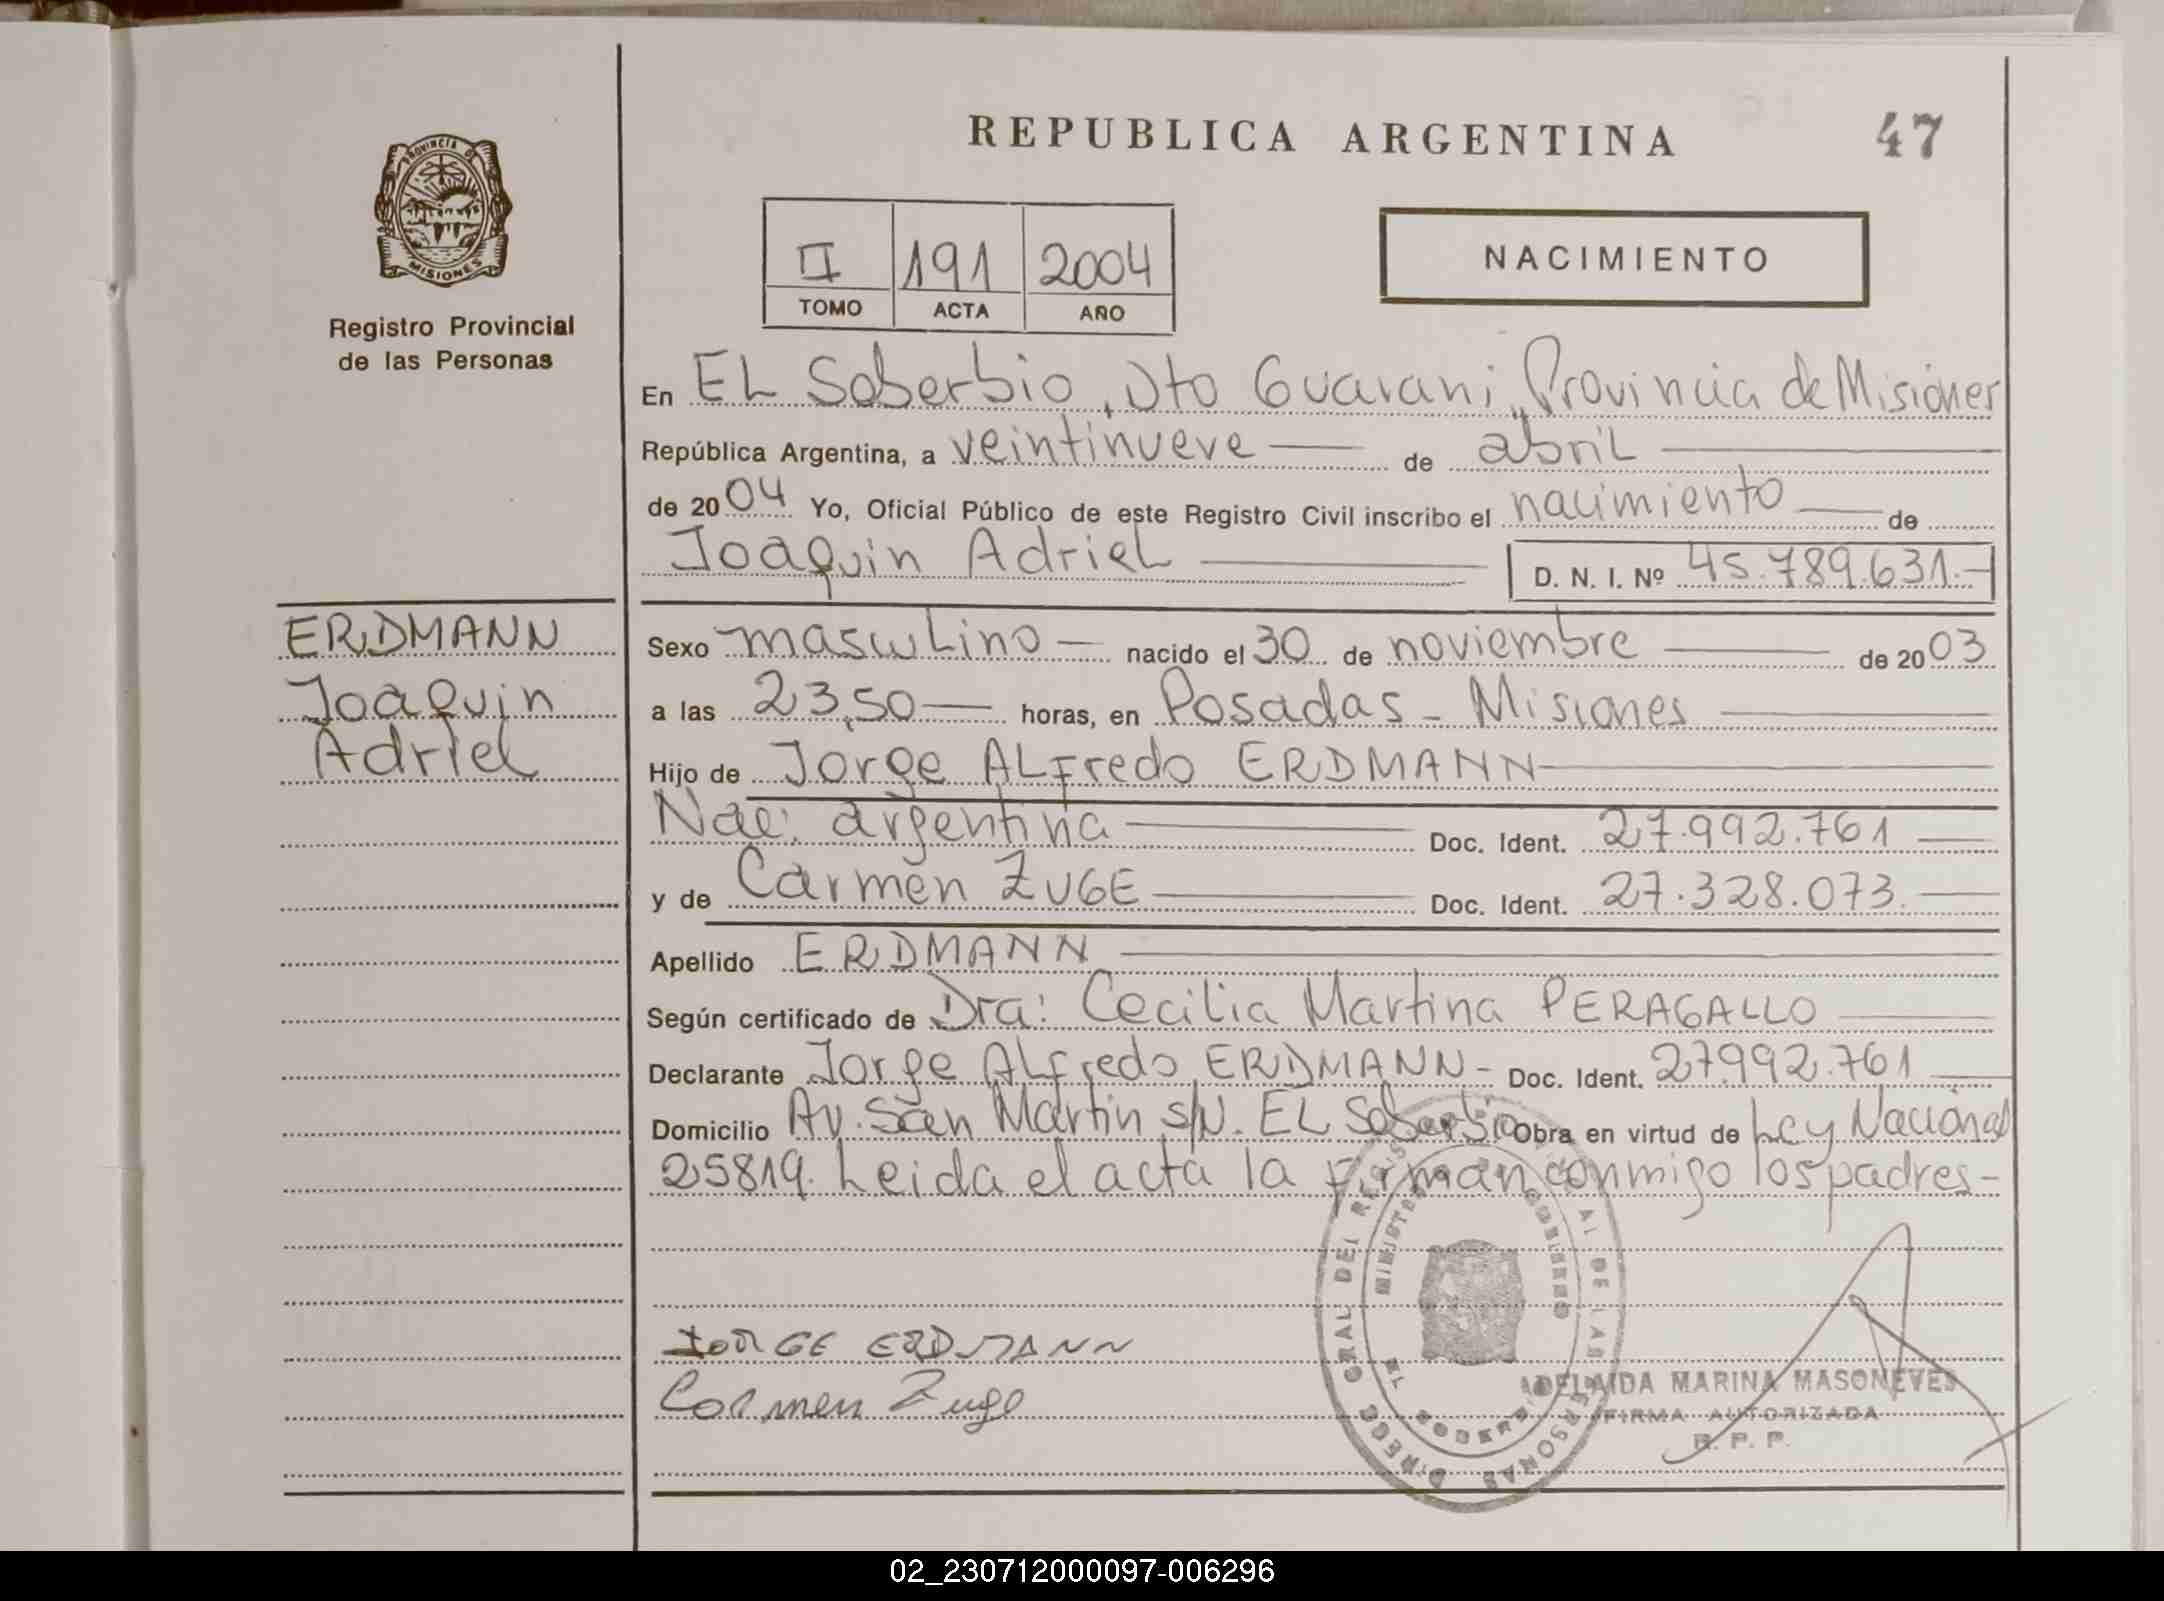 REPUBLICA ARGENTINA
47
PROVINCIA DE
MISIONES
Registro Provincial
de las Personas
II 191 2004
TOMO ACTA AÑO
NACIMIENTO
En EL Soberbio, Dto Guarani, Provincia de Misiones
República Argentina, a veintinueve de abril
de 2004 Yo, Oficial Público de este Registro Civil inscribo el nacimiento de
Joaquin Adriel D. N. I. Nº 45.789.631.-
ERDMANN
Joaquin
Adriel
Sexo masculino nacido el 30 de noviembre de 2003
a las 23,50 horas, en Posadas - Misiones
Hijo de Jorge ALFredo ERDMANN
Nac: argentina Doc. Ident. 27.992.761
y de Carmen ZUGE Doc. Ident. 27.328.073.
Apellido ERDMANN
Según certificado de Dra: Cecilia Martina PERAGALLO
Declarante Jorge ALFredo ERDMANN - Doc. Ident. 27.992.761
Domicilio Av. San Martin s/N. EL Soberbio Obra en virtud de Ley Nacional
25819. Leida el acta la firman conmigo los padres-
JORGE ERDMANN
Carmen Zuge
ADELAIDA MARINA MASONEVES
FIRMA AUTORIZADA
R. P. P.
02_230712000097-006296